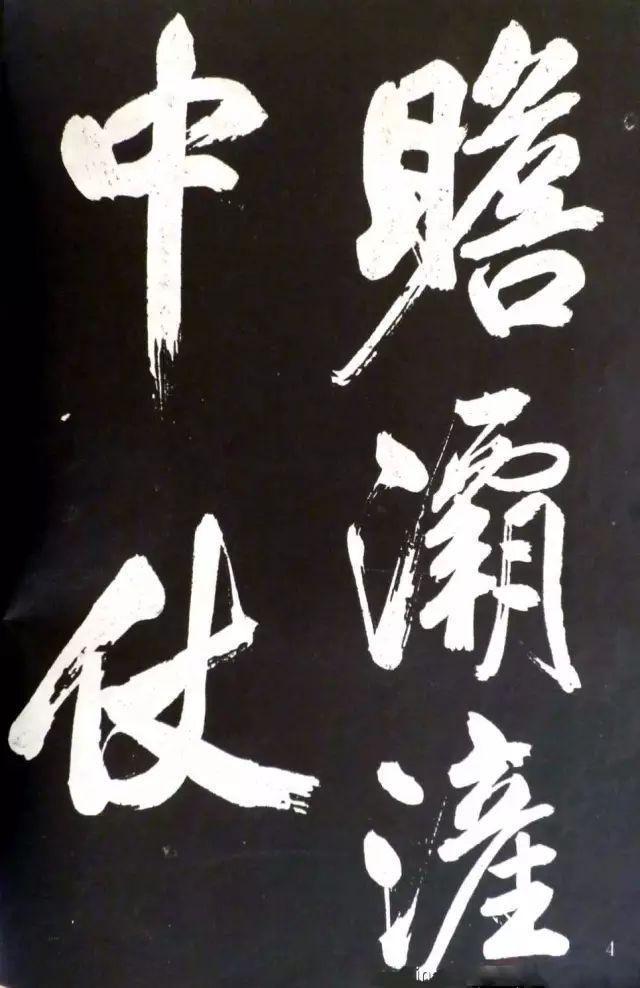 瞻灞滻
中仗
4